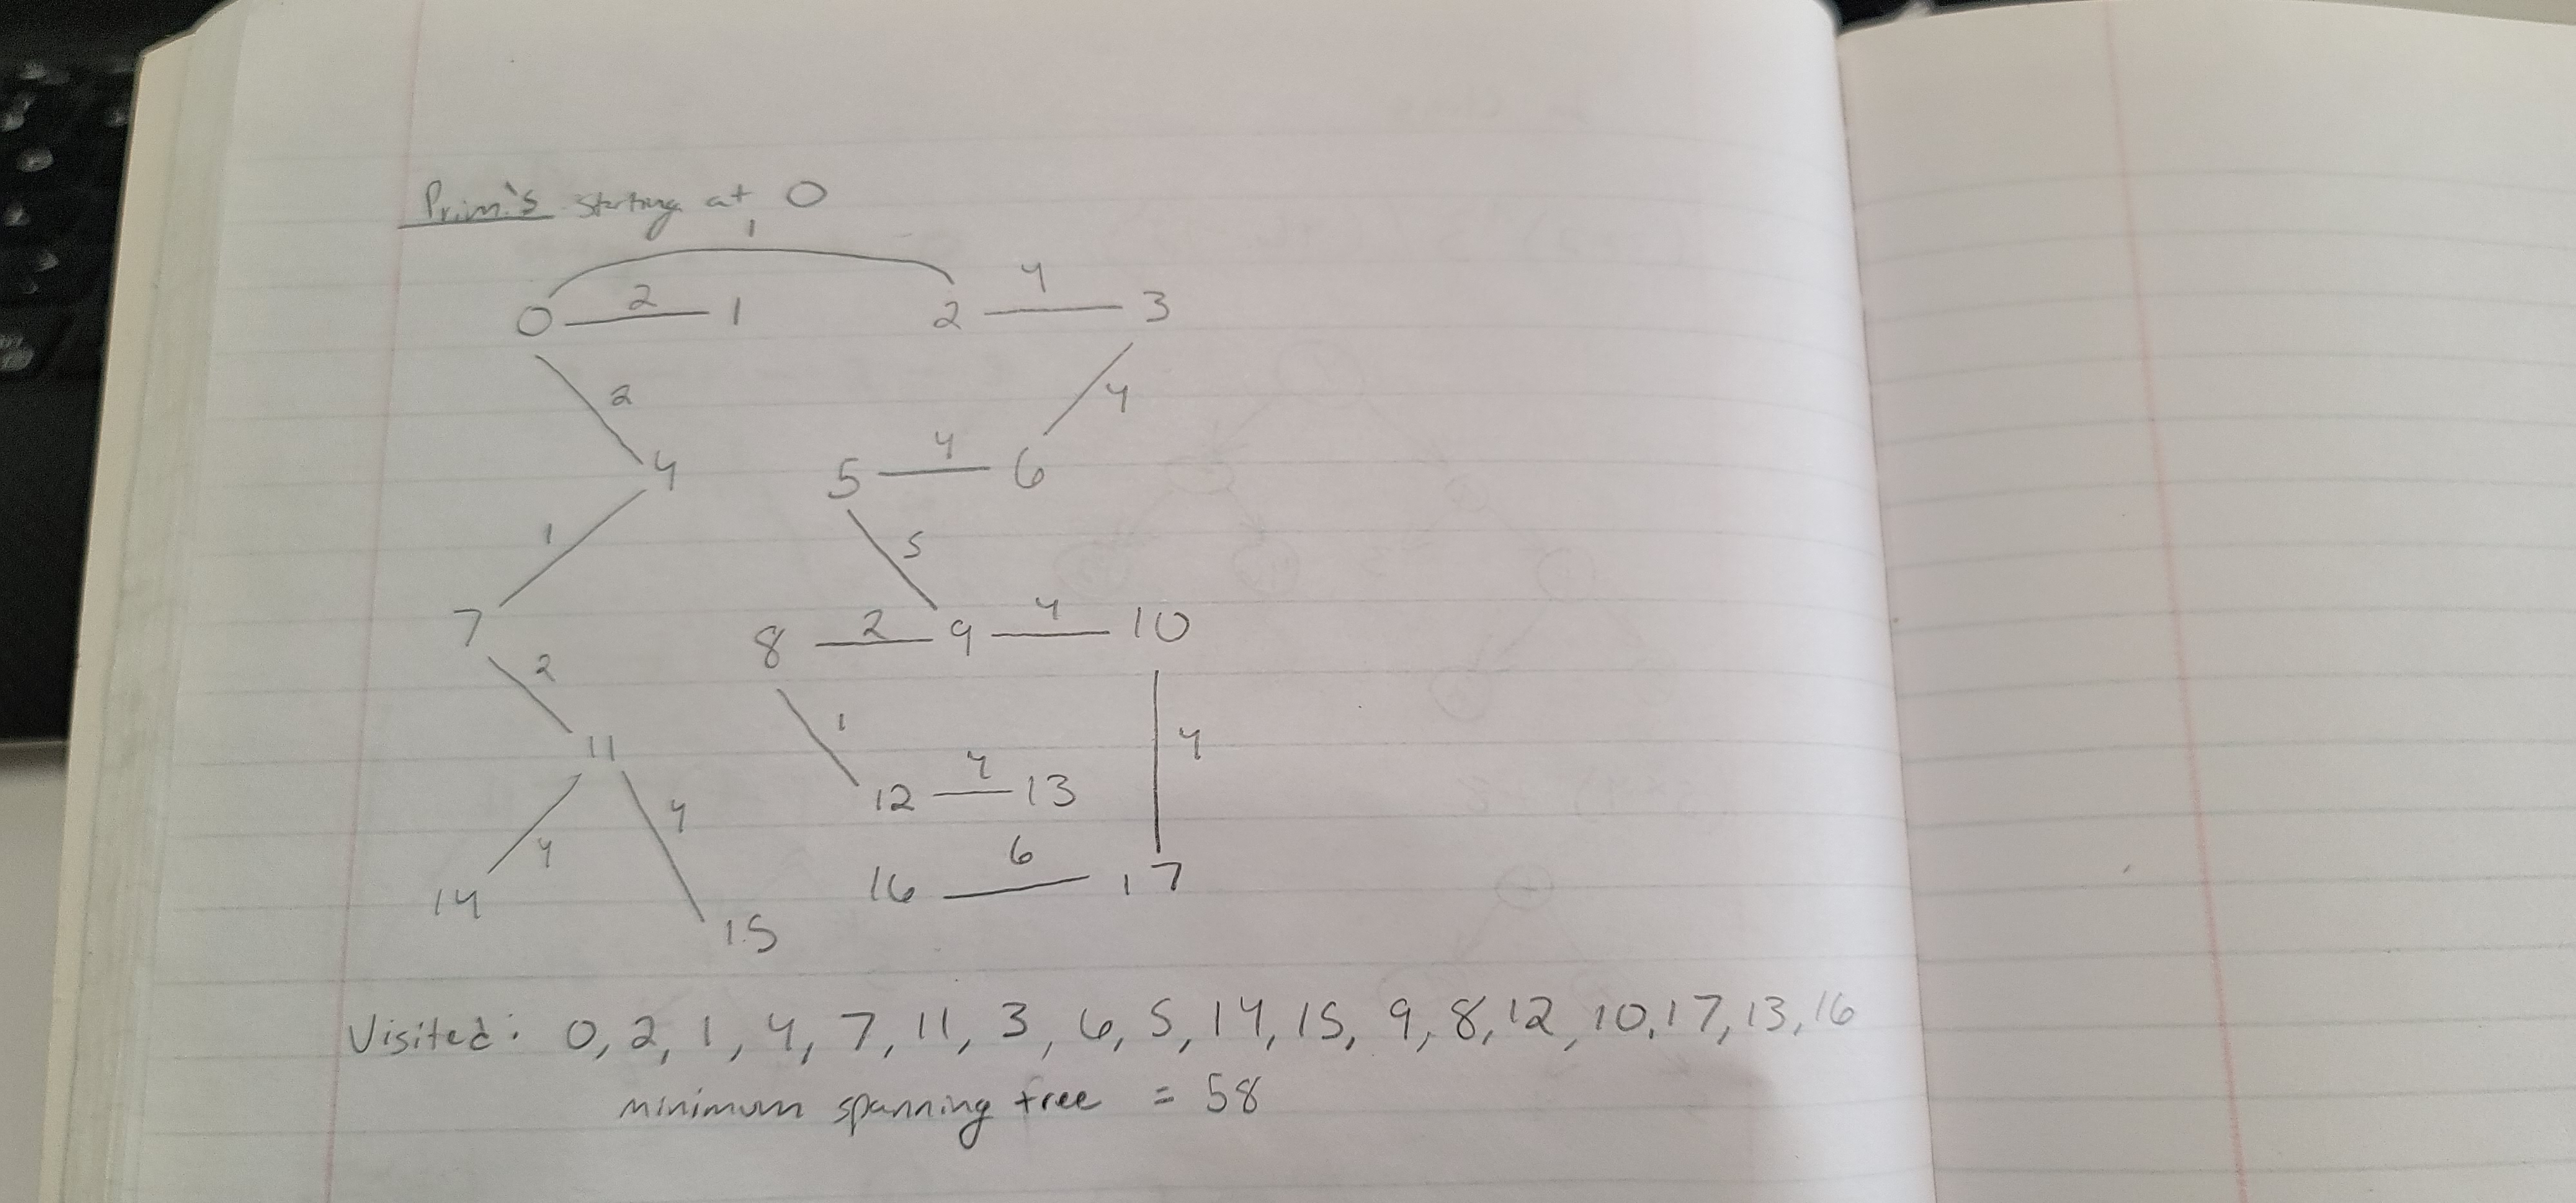 Prim's starting at 0
1
0 2 1 2 4 3
2 4
4 5 4 6
1 5
7 8 2 9 4 10
2
1 4
11 12 4 13
4 4 6
14 15 16 17
Visited: 0, 2, 1, 4, 7, 11, 3, 6, 5, 14, 15, 9, 8, 12, 10, 17, 13, 16
minimum spanning tree = 58